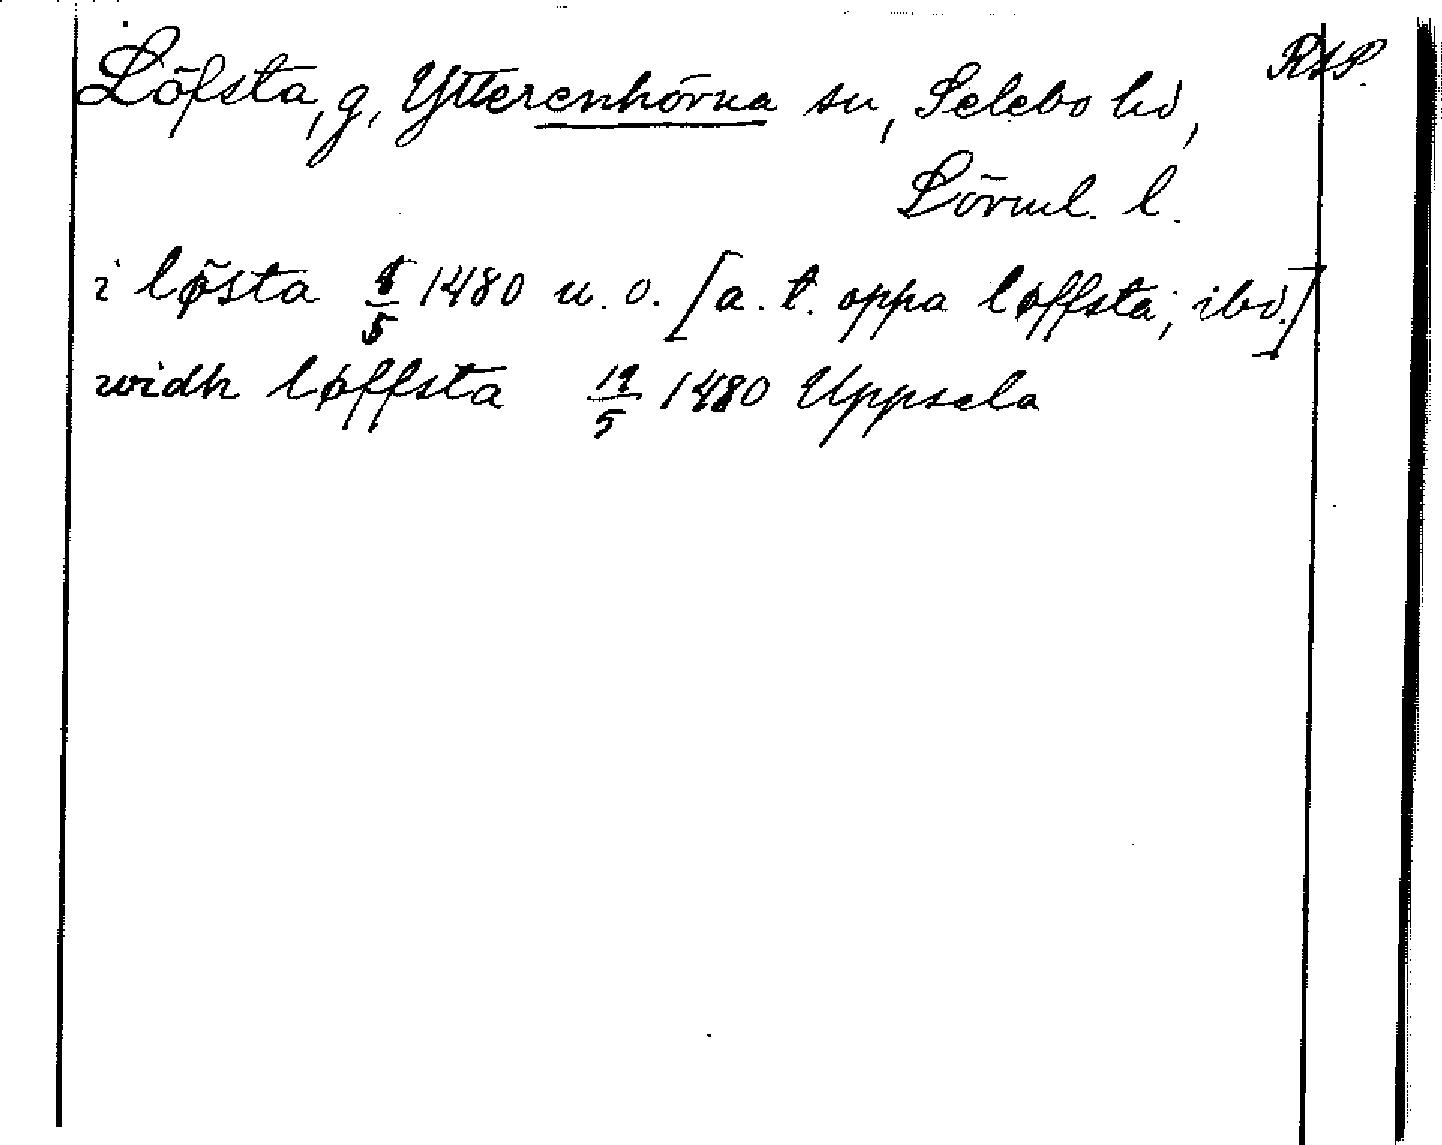 Löfsta, g, Ytterenhörna sn, Selebo hd, RAP.
Sörml. l.
i lø̄sta 8/5 1480 u. o. [a. t. oppa løffsta; ibd.]
widh løffsta 19/5 1480 Uppsala